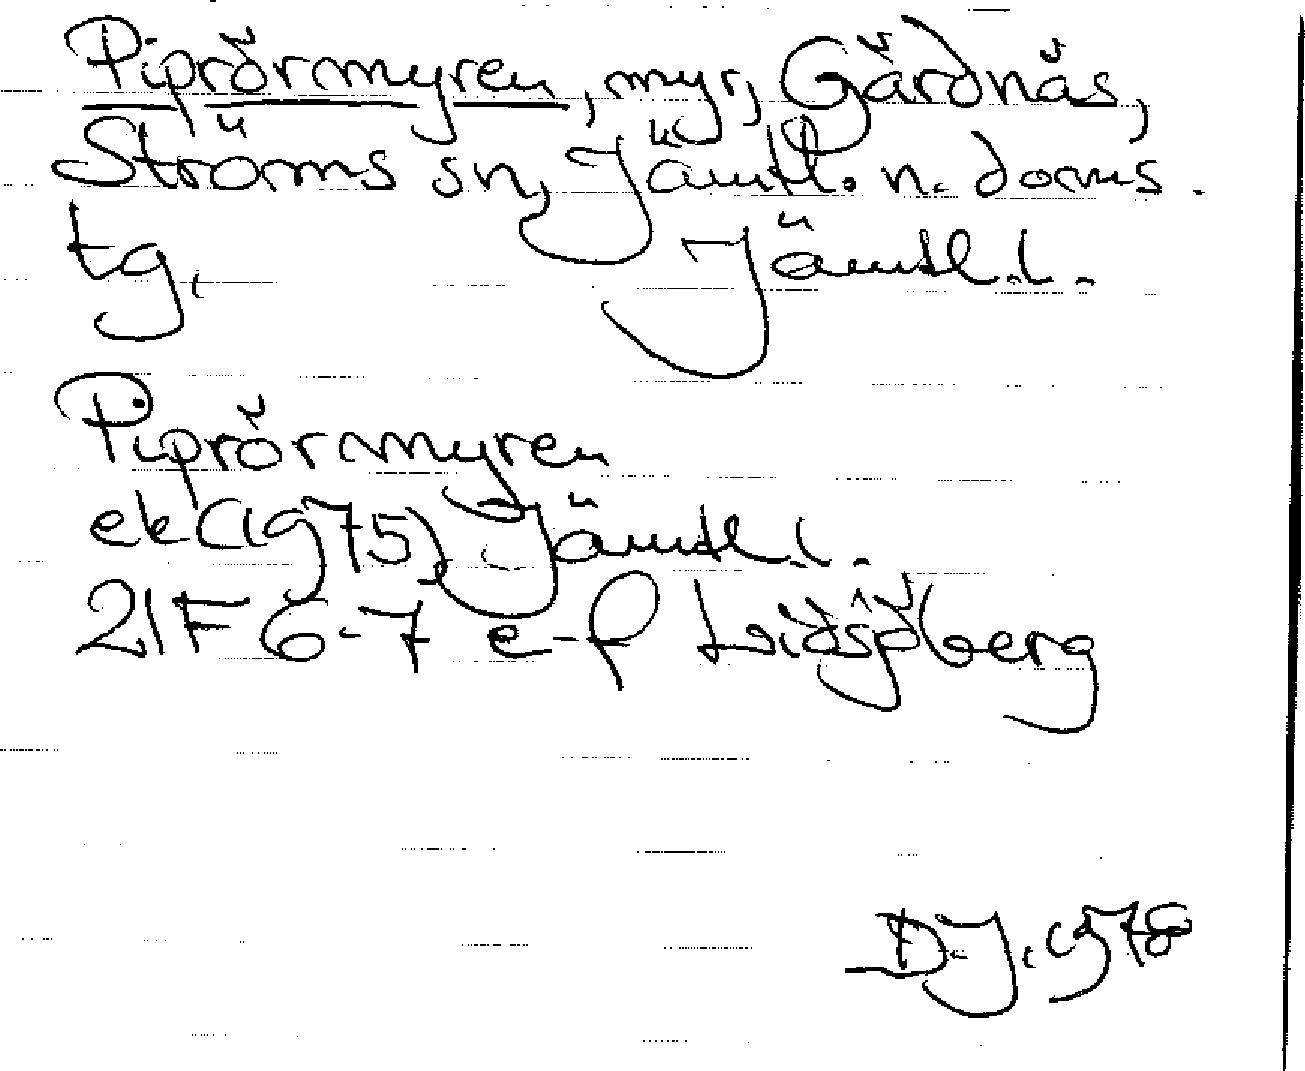 Piprörmyren, myr, Gärdnäs,
Ströms sn, Jämtl. n. doms.
tg. Jämtl. l.
Piprörmyren
ek (1975) Jämtl. l.
21F 6-7 e-f Lidsjöberg
D.J. 1978